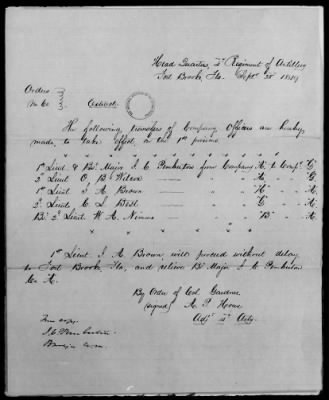 Head Quarters, 4th Regiment of Artillery
Fort Brooke, Fa. Sept. 28 1849
Orders
No 60
Extract.
The following transfers of Company Officers are hereby
made, to take effect, on the 1st proximo
1st Lieut & Bt. Major J. C. Pemberton from Company to Compy. G.
2d Lieut O. B. Wilcox
1st Lieut J. A. Brown
2d Lieut C. L. Best
Bt. 2d Lieut W. A. Nimmo "B" A.
1st Lieut J. A. Brown, will proceed without delay
to Fort Brooke Fa, and relieve Bt Major J. C. Pemberton
Co. A.
By Order of Col. Gardner
(signed) A. P. Howe
Adjt. 4th Arty.
True copy.
J. C. Pemberton